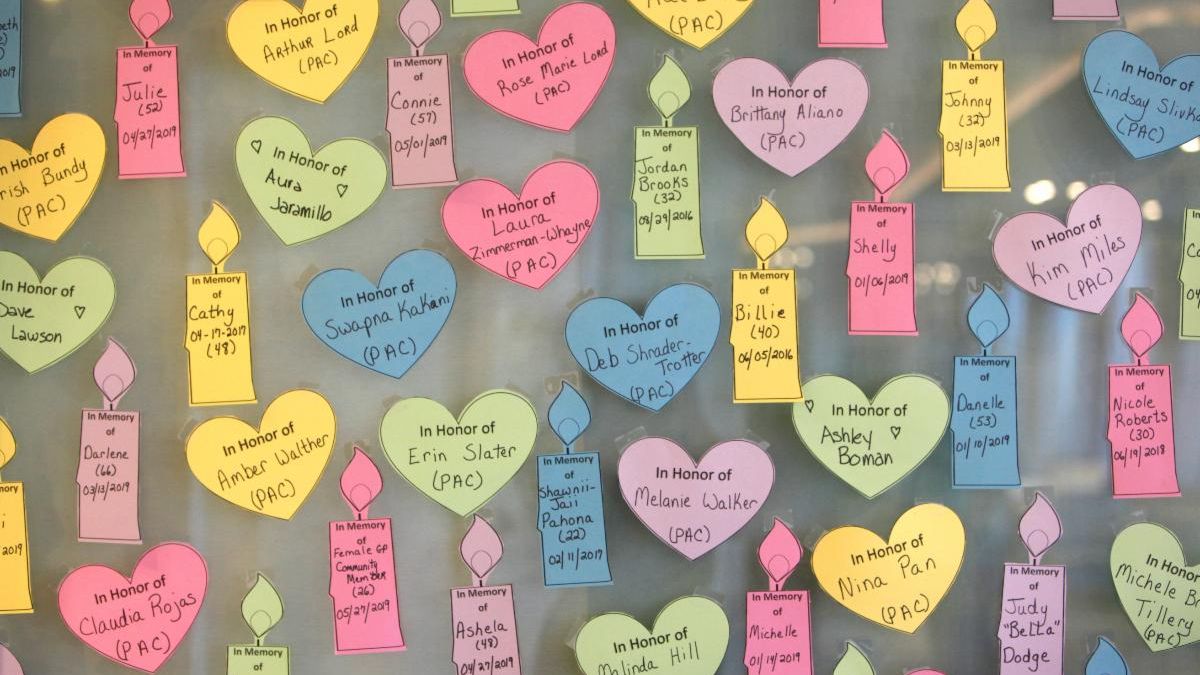 2019
In Memory
of
Julie
(52)
04/27/2019
In Honor of
Arthur Lord
(PAC)
In Memory
of
Connie
(57)
05/01/2019
In Honor of
Rose Marie Lord
(PAC)
(PAC)
In Memory
of
Jordan
Brooks
(32)
08/29/2016
In Honor of
Brittany Aliano
(PAC)
In Memory
of
Johnny
(32)
03/13/2019
In Honor of
Lindsay
(PAC)
In Honor of
rish Bundy
(PAC)
In Honor of
Aura
Jaramillo
In Honor of
Laura
Zimmerman-Whayne
(PAC)
In Memory
of
Shelly
01/06/2019
In Honor of
Kim Miles
(PAC)
In Honor of
Dave
Lawson
In Memory
of
Cathy
04-17-2017
(48)
In Honor of
Swapna Kakani
(PAC)
In Honor of
Deb Shrader-
Trotter
(PAC)
In Memory
of
Billie
(40)
06/05/2016
In Memory
of
Darlene
(66)
03/13/2019
In Honor of
Amber Walther
(PAC)
In Honor of
Erin Slater
(PAC)
In Memory
of
Shawnii-
Jaii
Pahona
(22)
02/11/2017
In Honor of
Melanie Walker
(PAC)
In Honor of
Ashley
Boman
In Memory
of
Danelle
(53)
01/10/2019
In Memory
of
Nicole
Roberts
(30)
06/19/2018
2019
In Honor of
Claudia Rojas
(PAC)
In Memory
of
In Memory
of
Female GP
Community
Member
(26)
05/27/2019
In Memory
of
Ashela
(48)
04/27/2019
In Honor of
Melinda Hill
In Memory
of
Michelle
01/14/2019
In Honor of
Nina Pan
(PAC)
In Memory
of
Judy
"Betta"
Dodge
In Honor
Michele
Tillery
(PAC)